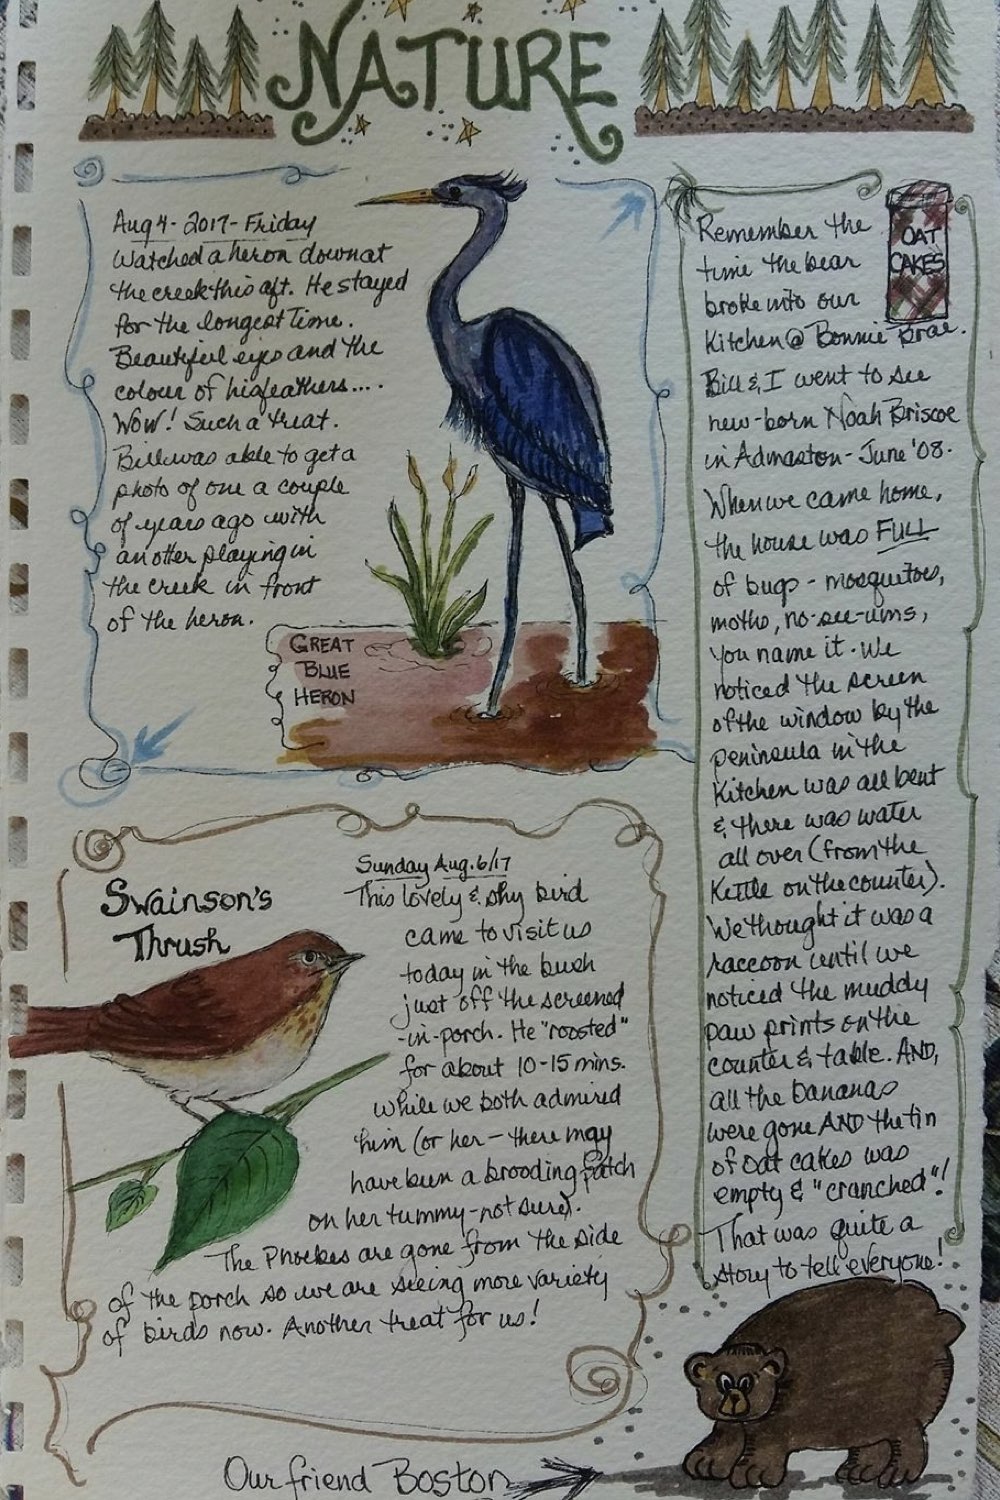 NATURE
Aug 4 - 2017 - Friday
Watched a heron down at
the creek this aft. He stayed
for the longest time.
Beautiful eyes and the
colour of his feathers....
Wow! Such a treat.
Bill was able to get a
photo of one a couple
of years ago with
an otter playing in
the creek in front
of the heron.
GREAT
BLUE
HERON
Swainson's
Thrush
Sunday Aug. 6/17
This lovely & shy bird
came to visit us
today in the bush
just off the screened
-in-porch. He "roosted"
for about 10-15 mins.
while we both admired
him (or her - there may
have been a brooding patch
on her tummy - not sure).
The Phoebes are gone from the side
of the porch so we are seeing more variety
of birds now. Another treat for us!
OAT
CAKES
Remember the
time the bear
broke into our
Kitchen @ Bonnie Brae.
Bill & I went to see
new-born Noah Briscoe
in Admaston - June '08.
When we came home,
the house was FULL
of bugs - mosquitoes,
moths, no-see-ums,
you name it. We
noticed the screen
of the window by the
peninsula in the
Kitchen was all bent
& there was water
all over (from the
Kettle on the counter).
We thought it was a
raccoon until we
noticed the muddy
paw prints on the
counter & table. AND,
all the bananas
were gone AND the tin
of oat cakes was
empty & "cranched"!
That was quite a
story to tell everyone!
Our friend Boston